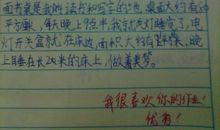 面书桌是我的读书和写字的地,桌面大约有60
平方厘,每天晚上9点半,我就关灯睡觉了,电
灯开关盒就在床边,面积大约有平方,晚
上睡在长2米的床上,做着美梦。
我很喜欢你的作业!
优秀!